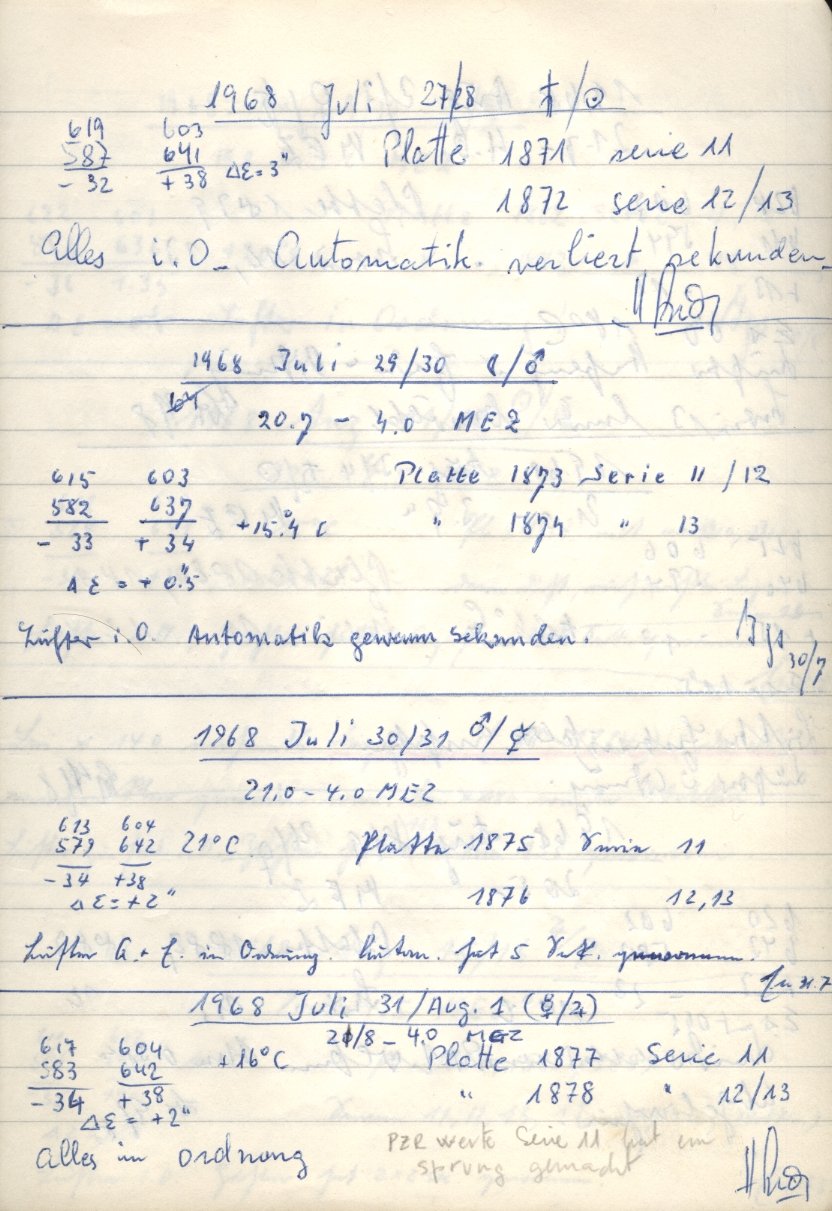 1968 Juli 27/28 ♄/☉
619 603
587 641 Δε=3" Platte 1871 serie 11
-32 +38
1872 serie 12/13
Alles i.O. Automatik verliert sekunden
1968 Juli 29/30 ☾/♂
20.7 - 4.0 MEZ
615 603 Platte 1873 Serie 11/12
582 637 +15°.4 C " 1874 " 13
- 33 + 34
Δε = + 0".5
Lüfter i.O. Automatik gewann Sekunden.
30/7
1968 Juli 30/31 ♂/☿
21.0 - 4.0 MEZ
613 604
579 642 21°C Platte 1875 Serie 11
-34 +38
Δε=+2" 1876 12,13
Lüfter A. + E. in Ordnung. Autom. hat 5 Sek. gewonnen.
31.7
1968 Juli 31/Aug. 1 (☿/♃)
- 4.0 MEZ
617 604 +16°C Platte 1877 Serie 11
583 642
-34 +38 " 1878 " 12/13
Δε = +2"
Alles in Ordnung
PZR Werte Serie 11 hat ein
sprung gemacht